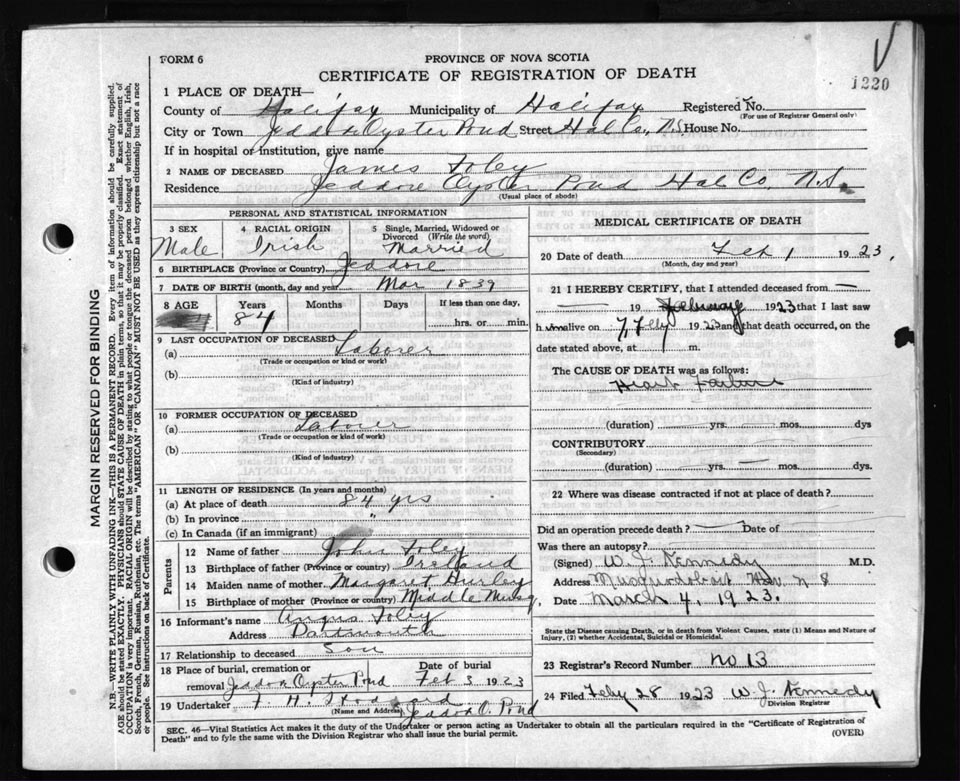 FORM 6
PROVINCE OF NOVA SCOTIA
CERTIFICATE OF REGISTRATION OF DEATH
1220
1 PLACE OF DEATH—
County of Halifax Municipality of Halifax Registered No.
(For use of Registrar General only)
City or Town Jeddore Oyster Pond Street Hal Co, N.S. House No.
If in hospital or institution, give name
2 NAME OF DECEASED James Foley
Residence Jeddore Oyster Pond Hal Co, N.S.
(Usual place of abode)
PERSONAL AND STATISTICAL INFORMATION
3 SEX Male
4 RACIAL ORIGIN Irish
5 Single, Married, Widowed or Divorced (Write the word) Married
6 BIRTHPLACE (Province or Country) Jeddore
7 DATE OF BIRTH (month, day and year) Mar 1839
8 AGE Years Months Days If less than one day,
84 hrs. or min.
9 LAST OCCUPATION OF DECEASED
(a) Laborer
(Trade or occupation or kind or work)
(b)
(Kind of industry)
10 FORMER OCCUPATION OF DECEASED
(a) Laborer
(Trade or occupation or kind or work)
(b)
(Kind of industry)
11 LENGTH OF RESIDENCE (In years and months)
(a) At place of death 84 yrs
(b) In province
(c) In Canada (if an immigrant)
Parents
12 Name of father John Foley
13 Birthplace of father (Province or country) Ireland
14 Maiden name of mother Margaret Hurley
15 Birthplace of mother (Province or country) Middle Musq.
16 Informant's name Angus Foley
Address Dartmouth
17 Relationship to deceased Son
18 Place of burial, cremation or removal Jeddore Oyster Pond
Date of burial Feb 3 1923
19 Undertaker
(Name and Address) Jeddore O. Pond
MEDICAL CERTIFICATE OF DEATH
20 Date of death Feb 1 1923,
(Month, day and year)
21 I HEREBY CERTIFY, that I attended deceased from —
— 19 February 1923 that I last saw
h im alive on Feby 1923 and that death occurred, on the
date stated above, at m.
The CAUSE OF DEATH was as follows:
Heart Failure
(duration) yrs. mos. dys
CONTRIBUTORY
(Secondary)
(duration) yrs. mos. dys.
22 Where was disease contracted if not at place of death?
Did an operation precede death? — Date of
Was there an autopsy?
(Signed) W. J. Kennedy M.D.
Address Musquodoboit N S
Date March 4, 1923.
State the Disease causing Death, or in death from Violent Causes, state (1) Means and Nature of
Injury, (2) whether Accidental, Suicidal or Homicidal.
23 Registrar's Record Number no 13
24 Filed Feby 28 1923 W. J. Kennedy
Division Registrar
SEC. 46—Vital Statistics Act makes it the duty of the Undertaker or person acting as Undertaker to obtain all the particulars required in the "Certificate of Registration of
Death" and to fyle the same with the Division Registrar who shall issue the burial permit.
(OVER)
MARGIN RESERVED FOR BINDING
N.B.—WRITE PLAINLY WITH UNFADING INK—THIS IS A PERMANENT RECORD. Every item of information should be carefully supplied.
AGE should be stated EXACTLY. PHYSICIANS should STATE CAUSE OF DEATH in plain terms, so that it may be properly classified. Exact statement of
OCCUPATION is very important. RACIAL ORIGIN will be described by stating to what people or tongue the deceased person belonged whether English, Irish,
Scotch, French, German, Russian, Ruthenian, etc. The terms "AMERICAN" OR "CANADIAN" MUST NOT BE USED as they express citizenship but not a race
or people. See instructions on back of Certificate.